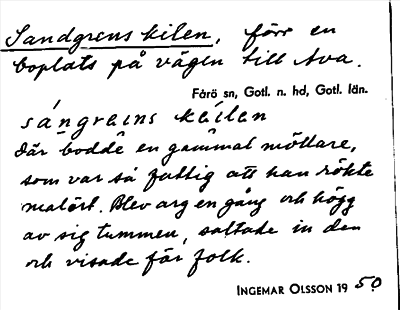 Sandgrens kilen, förr en
boplats på vägen till Ava.
Fårö sn, Gotl. n. hd, Gotl. län.
sángreins keilen
där bodde en gammal möllare,
som var så fattig att han rökte
malört. Blev arg en gång och högg
av sig tummen, saltade in den
och visade för folk.
INGEMAR OLSSON 1950